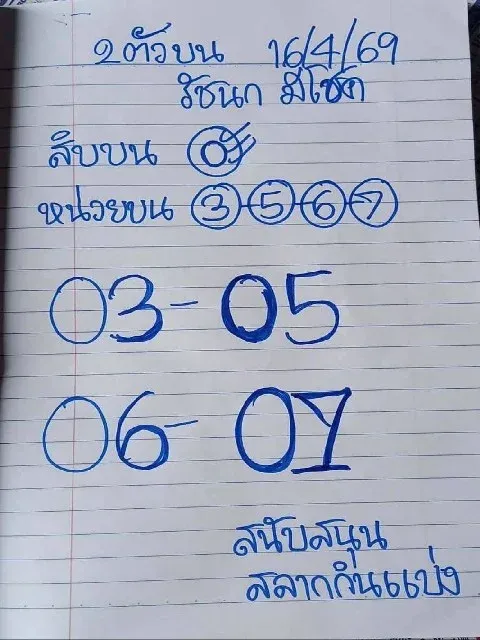 2 ตัวบน 16/4/69
รัชนก มีโชค
สิบบน 0
หน่วยบน 3-5-6-7
03-05
06-07
สนับสนุน
สลากกินแบ่ง